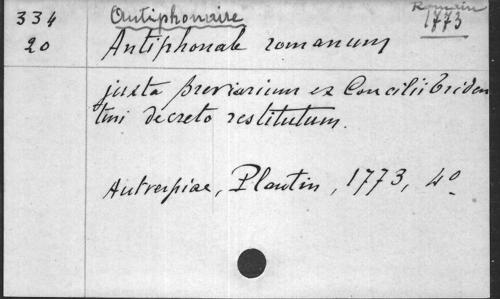 334 Antiphonaire Romain
20 1773
Antiphonale romanum
juxta breviarium ex Concilii Triden
tini decreto restitutum.
Antverpiae, Plantin, 1773, 4º